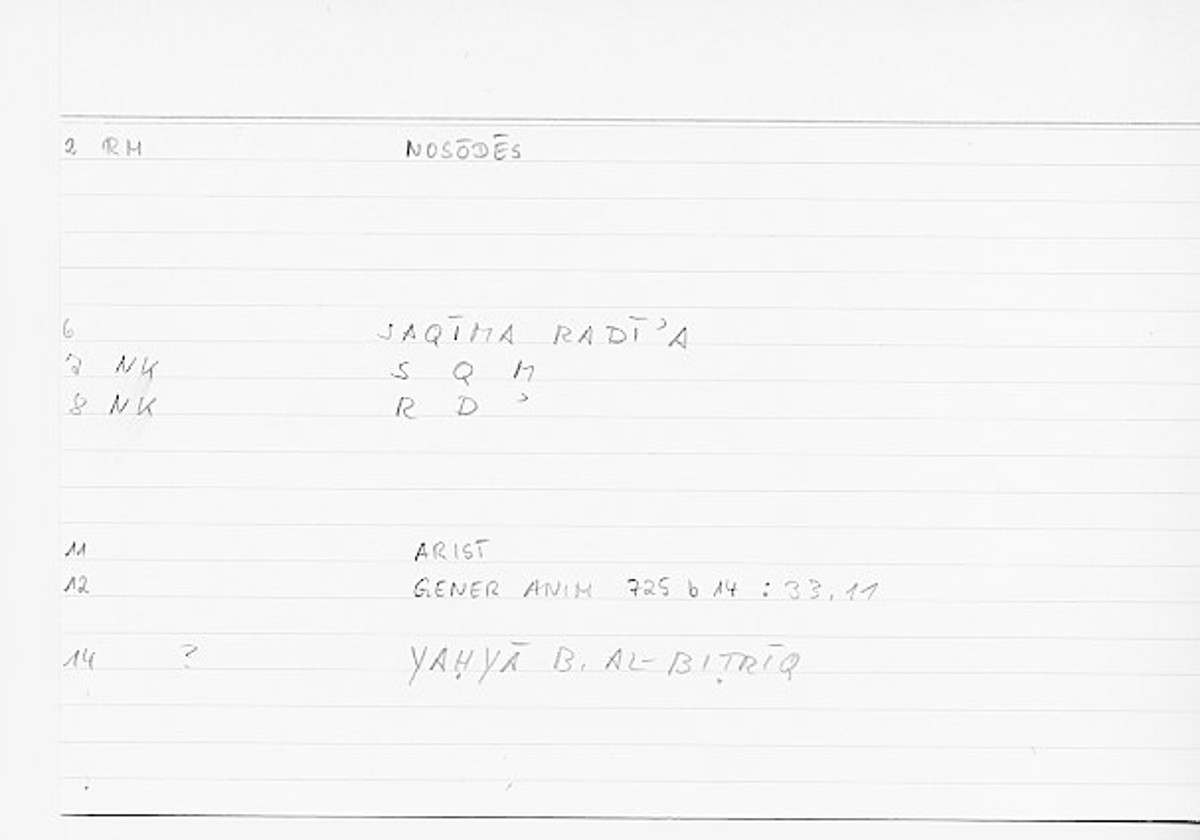 2 RM NOSŌDĒS
6 SAQĪMA RADĪʾA
7 NK S Q M
8 NK R D ʾ
11 ARIST
12 GENER ANIM 725 b 14 : 33,11
14 ? YAḤYĀ B. AL-BIṬRĪQ